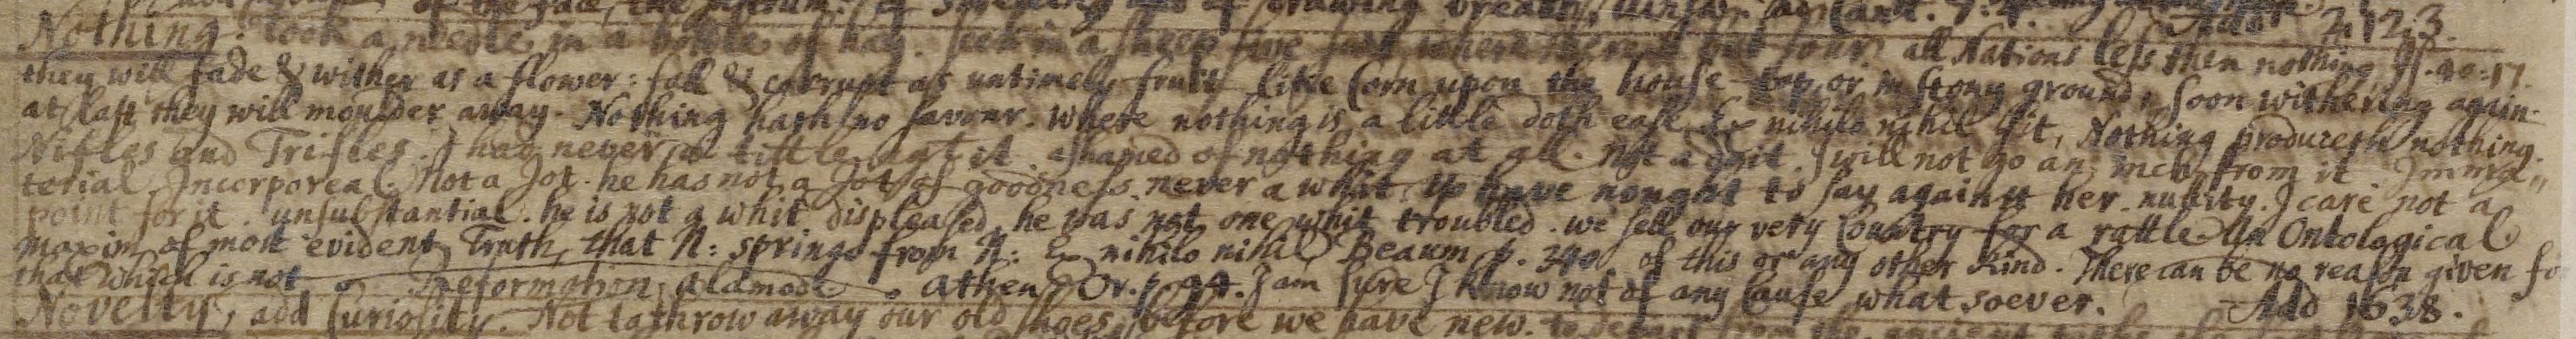 of the face, the of smelling and of drawing breath,
Nothing. look a needle in a bottle of hay. seek in a sheep five feet where there is but four. all Nations less then nothing Js. 40:17.
they will fade & wither as a flower: fall & corrupt as untimely fruit like Corn upon the house-top, or in stony ground, soon withering again.
at last they will moulder away. Nothing hath no savour. where nothing is a little doth ease. Ex nihilo nihil fit, Nothing produceth nothing.
Nifles and Trifles. J hav never a tittle agst it. ashamed of nothing at all. not a doit. J will not go an inch from it Jmma"
terial. Jncorporeal. Not a Jot. he has not a Jot of goodness. never a whit. to have nought to say against her. nullity. J care not a
point for it. unsubstantial. he is not a whit displeased, he was not one whit troubled. we sell our very Country for a rattle. An Ontological
maxim of most evident Truth, that N: springs from N: Ex nihilo nihil Beaum p. 340. of this or any other kind. There can be no reason given fo
that which is not Reformation, alamode. Athen Or. p. 94. J am sure J know not of any Cause what soever. Add 1638.
Novelty, add Curiosity. Not to throw away our old shoes, before we have new.